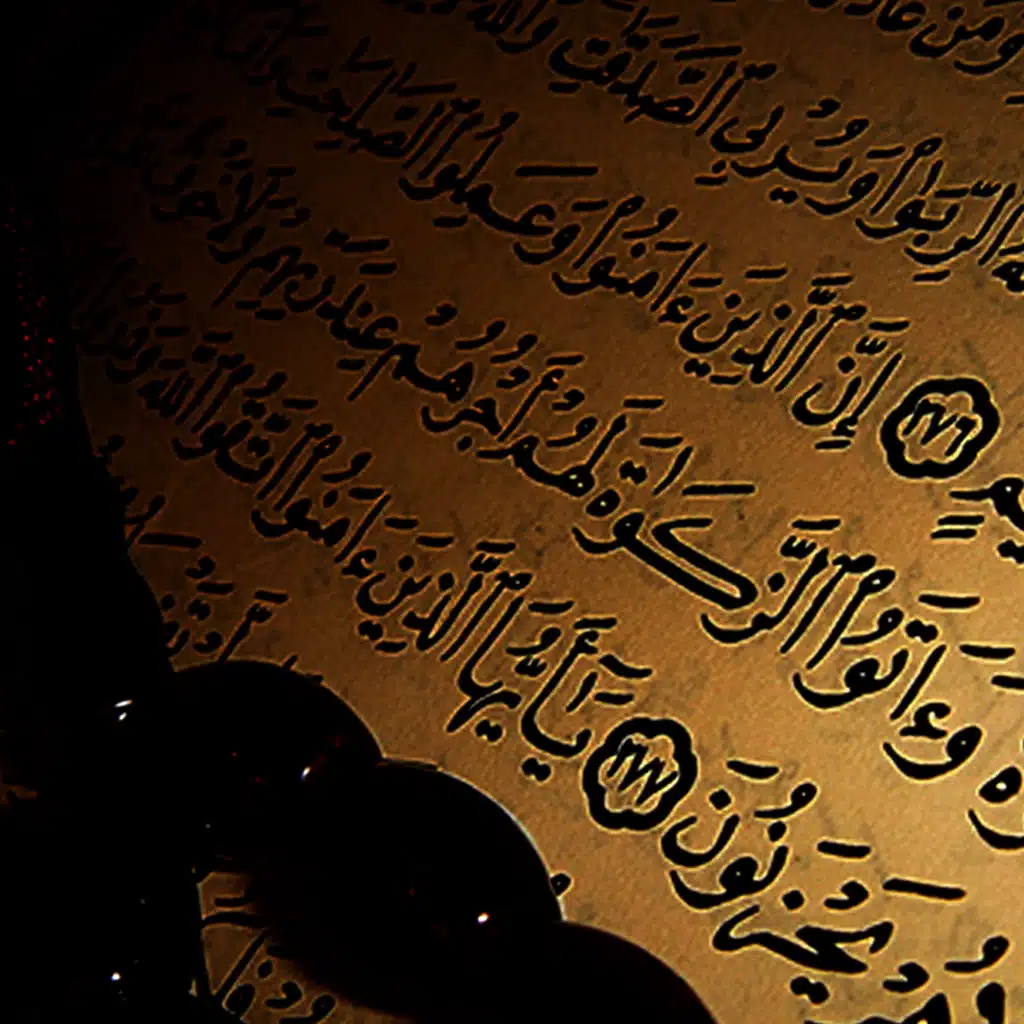 وَمَنْ عَادَ
ٱلرِّبَوٰا۟ وَيُرْبِى ٱلصَّدَقَٰتِ وَٱللَّهُ
۝٢٧٦ إِنَّ ٱلَّذِينَ ءَامَنُوا۟ وَعَمِلُوا۟ ٱلصَّٰلِحَٰتِ
وَءَاتَوُا۟ ٱلزَّكَوٰةَ لَهُمْ أَجْرُهُمْ عِندَ رَبِّهِمْ وَلَا خَوْفٌ
يَحْزَنُونَ ۝٢٧٧ يَٰٓأَيُّهَا ٱلَّذِينَ ءَامَنُوا۟ ٱتَّقُوا۟ ٱللَّهَ وَذَرُوا۟